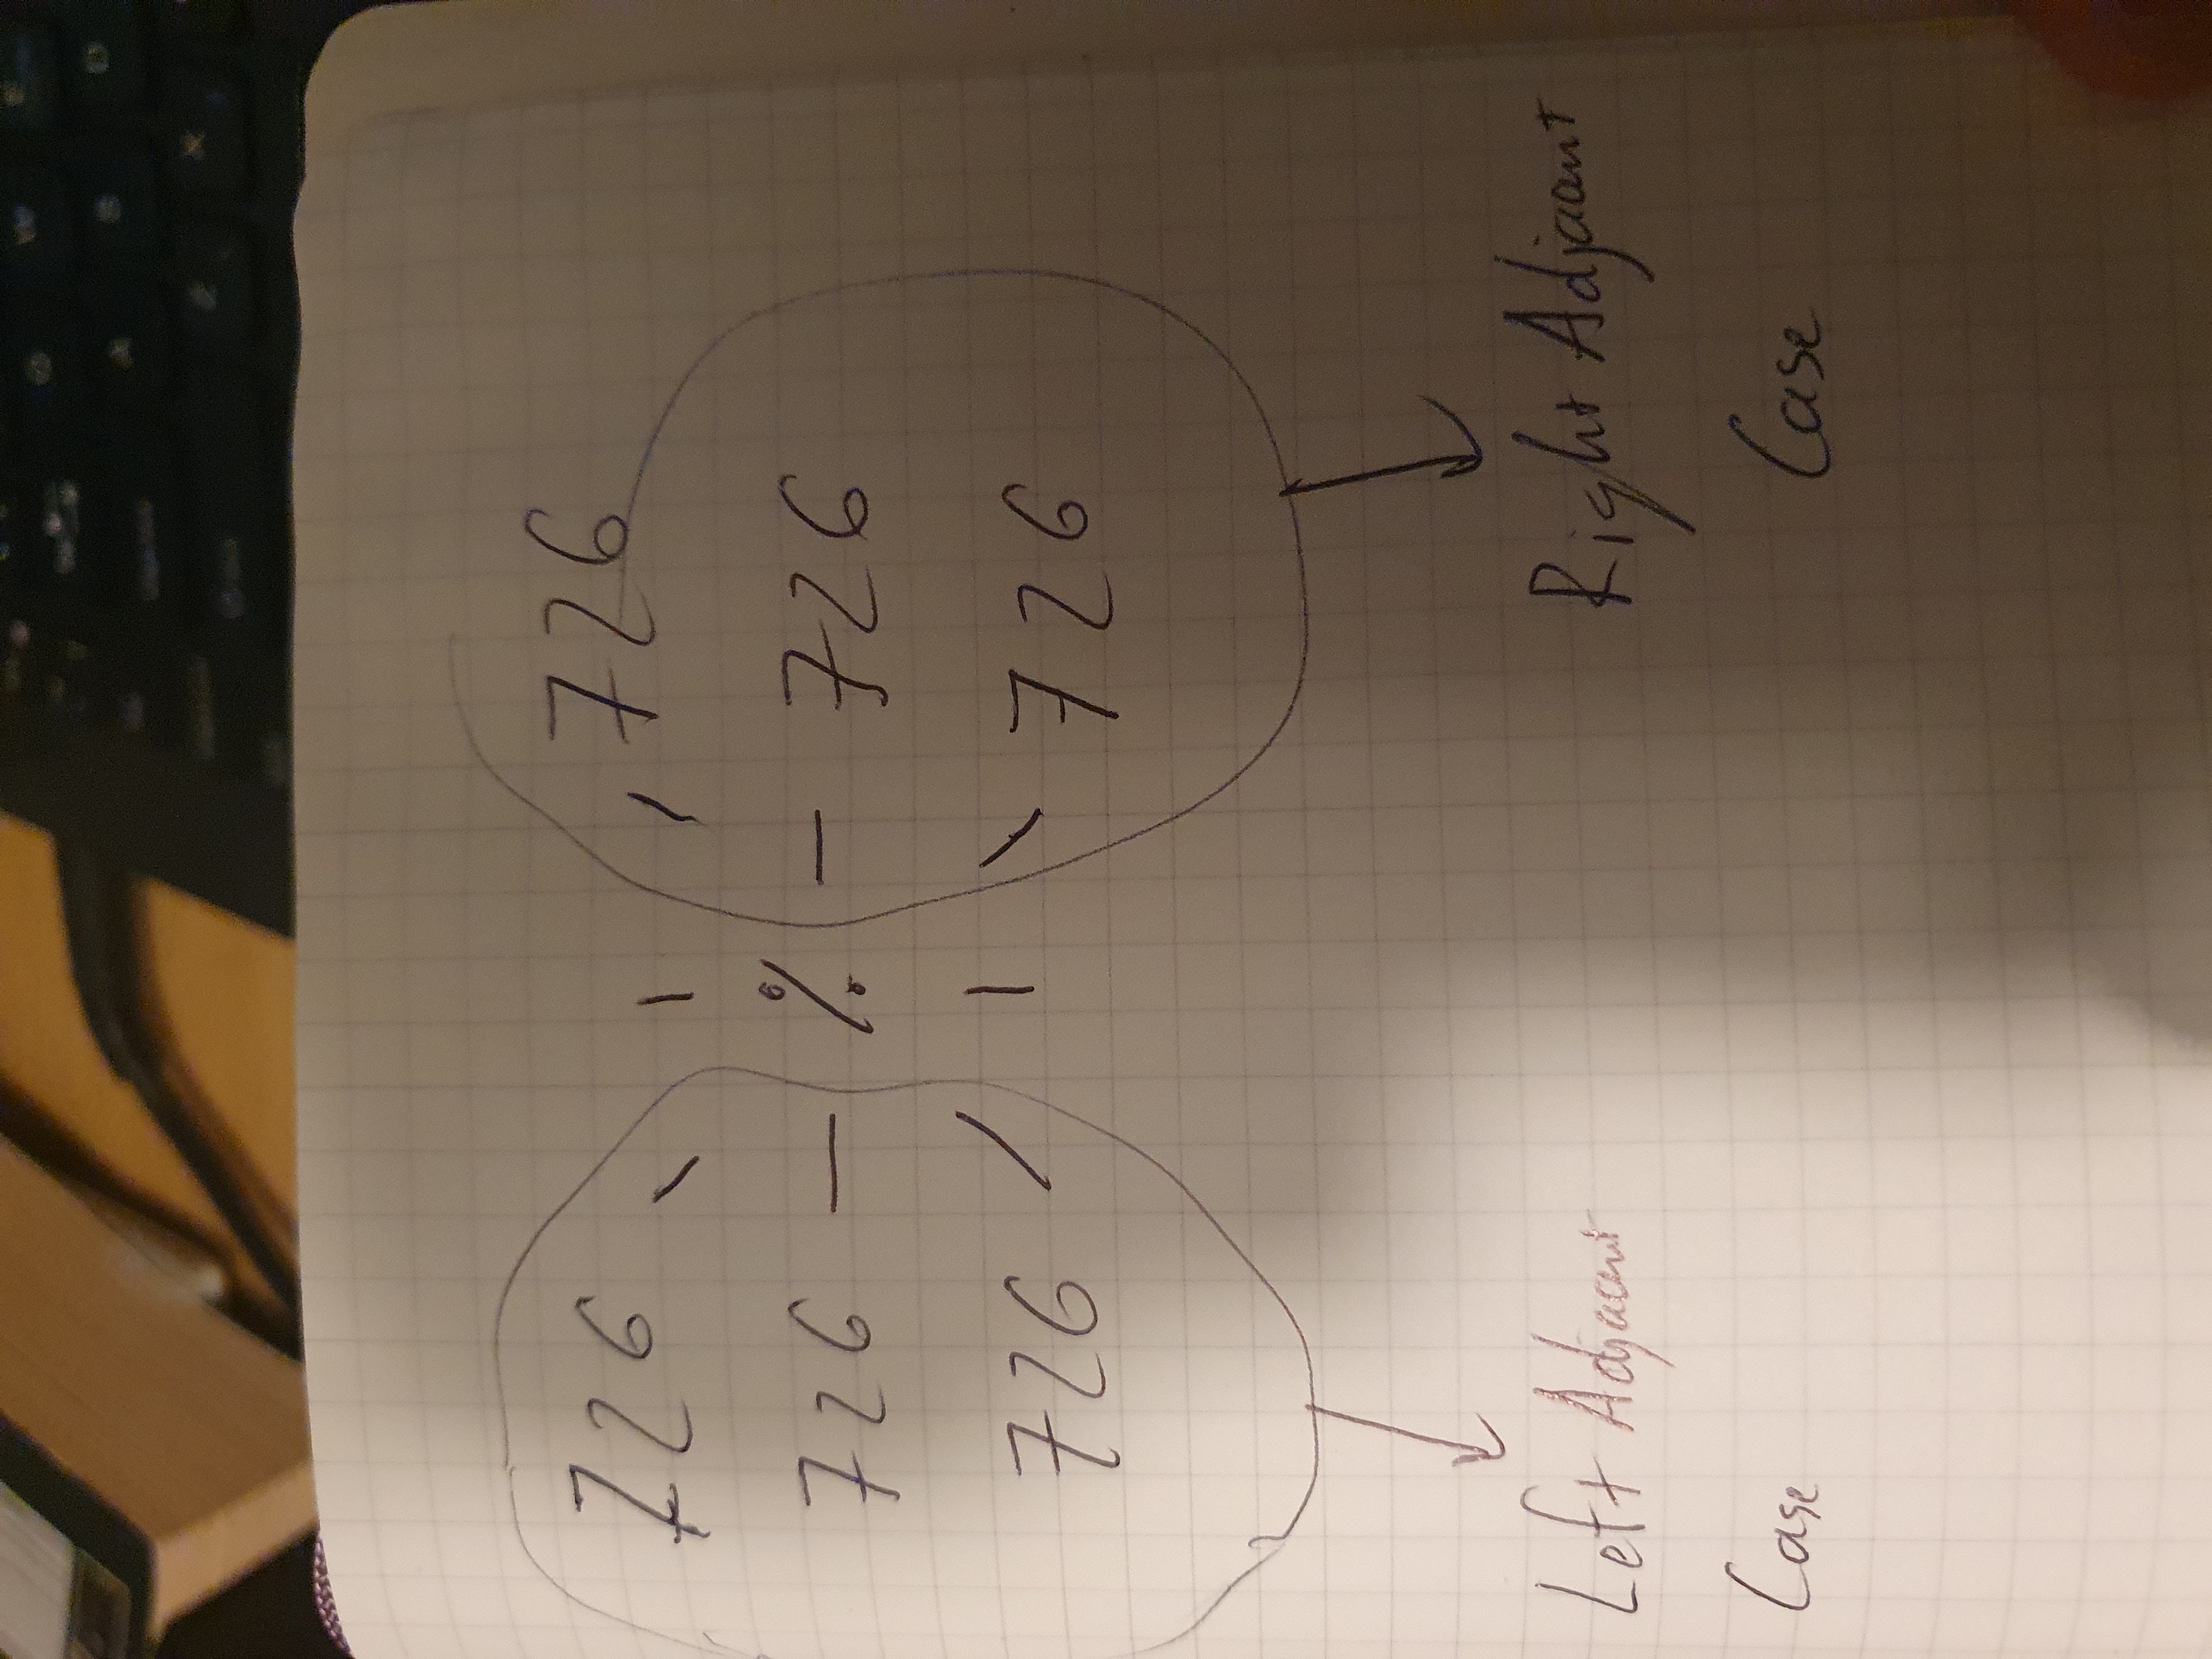 726 726
726 % 726
726 726
Left Adjacent Right Adjacent
Case Case